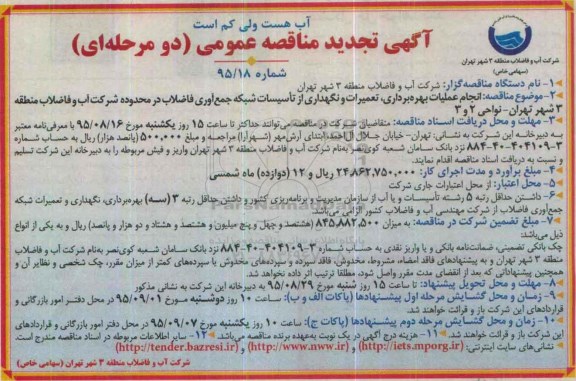 آب هست ولی کم است
آگهی تجدید مناقصه عمومی (دو مرحله‌ای)
شماره ۹۵/۱۸
شرکت آب و فاضلاب منطقه ۳ شهر تهران
(سهامی خاص)
۱- نام دستگاه مناقصه‌گزار: شرکت آب و فاضلاب منطقه ۳ شهر تهران
۲- موضوع مناقصه: انجام عملیات بهره‌برداری، تعمیرات و نگهداری از تأسیسات شبکه جمع‌آوری فاضلاب در محدوده شرکت آب و فاضلاب منطقه
۳ شهر تهران- نواحی ۲ و ۳
۳- مهلت و محل دریافت اسناد مناقصه: متقاضیان شرکت در مناقصه می‌توانند حداکثر تا ساعت ۱۵ روز یکشنبه مورخ ۹۵/۰۸/۱۶ با معرفی‌نامه معتبر
به دبیرخانه این شرکت به نشانی: تهران- خیابان جلال آل احمد (ابتدای آرش‌مهر (شهرآرا) مراجعه و مبلغ ۵۰۰،۰۰۰ (پانصد هزار) ریال به حساب شماره
۳-۴۰۴۱۰۹-۴۰-۸۸۴ نزد بانک سامان شعبه کوی نصر به‌نام شرکت آب و فاضلاب منطقه ۳ شهر تهران واریز و فیش مربوطه را به دبیرخانه این شرکت تسلیم
و نسبت به دریافت اسناد مناقصه اقدام نمایند.
۴- مبلغ برآورد و مدت اجرای کار: ۲۴،۸۶۲،۷۵۰،۰۰۰ ریال و ۱۲ (دوازده) ماه شمسی
۵- محل اعتبار: از محل اعتبارات جاری شرکت
۶- داشتن حداقل رتبه ۵ رشته تأسیسات و یا آب از سازمان مدیریت و برنامه‌ریزی کشور و داشتن حداقل رتبه ۳ (سه) بهره‌برداری، نگهداری و تعمیرات شبکه
جمع‌آوری فاضلاب از شرکت مهندسی آب و فاضلاب کشور الزامی می‌باشد.
۷- مبلغ تضمین شرکت در مناقصه: به میزان ۸۴۵،۸۸۲،۵۰۰ (هشتصد و چهل و پنج میلیون و هشتصد و هشتاد و دو هزار و پانصد) ریال و به یکی از انواع
ذیل می‌باشد:
چک بانکی تضمینی، ضمانت‌نامه بانکی و یا واریز نقدی به حساب شماره ۳-۴۰۴۱۰۹-۴۰-۸۸۴ نزد بانک سامان شعبه کوی‌نصر به‌نام شرکت آب و فاضلاب
منطقه ۳ شهر تهران و به پیشنهادهای فاقد امضاء، مشروط، مخدوش، فاقد سپرده و سپرده‌های مخدوش یا سپرده‌های کمتر از میزان مقرر، چک شخصی و نظایر آن و
همچنین پیشنهاداتی که بعد از انقضای مدت مقرر واصل شود، مطلقا ترتیب اثر داده نخواهد شد.
۸- مهلت و محل تحویل پیشنهاد: تا ساعت ۱۵ روز شنبه مورخ ۹۵/۰۸/۲۹ به دبیرخانه این شرکت به نشانی مذکور
۹- زمان و محل گشایش مرحله اول پیشنهادها (پاکات الف و ب): ساعت ۱۰ روز دوشنبه مورخ ۹۵/۰۹/۰۱ در محل دفتر امور بازرگانی و
قراردادهای این شرکت باز و قرائت خواهند شد.
۱۰- زمان و محل گشایش مرحله دوم پیشنهادها (پاکات ج): ساعت ۱۰ روز یکشنبه مورخ ۹۵/۰۹/۰۷ در محل دفتر امور بازرگانی و قراردادهای
این شرکت باز و قرائت خواهند شد. ۱۱- هزینه درج آگهی در یک نوبت به‌عهده برنده مناقصه می‌باشد. ۱۲- سایر اطلاعات مربوطه در اسناد مناقصه مندرج است.
نشانی‌های سایت اینترنتی: (http://iets.mporg.ir) و (http://www.nww.ir) و (http://tender.bazresi.ir)
شرکت آب و فاضلاب منطقه ۳ شهر تهران (سهامی خاص)